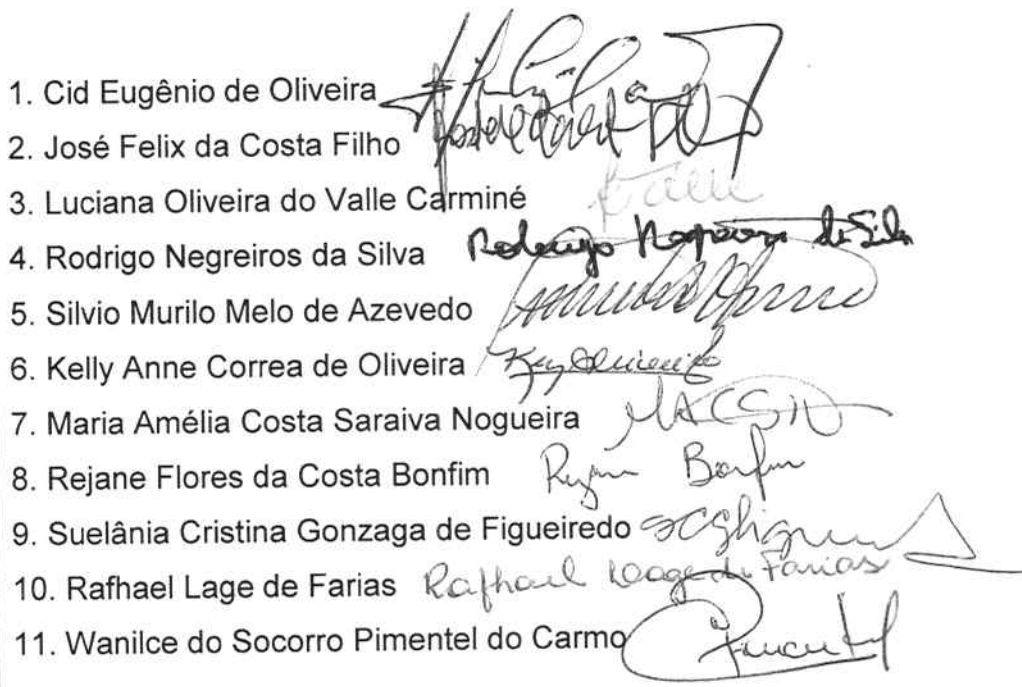 1. Cid Eugênio de Oliveira
2. José Felix da Costa Filho
3. Luciana Oliveira do Valle Carminé
4. Rodrigo Negreiros da Silva Rodrigo Negreiros da Silva
5. Silvio Murilo Melo de Azevedo
6. Kelly Anne Correa de Oliveira
7. Maria Amélia Costa Saraiva Nogueira MACSN
8. Rejane Flores da Costa Bonfim Rejane Bonfim
9. Suelânia Cristina Gonzaga de Figueiredo
10. Rafhael Lage de Farias Rafhael Lage de Farias
11. Wanilce do Socorro Pimentel do Carmo Pimentel